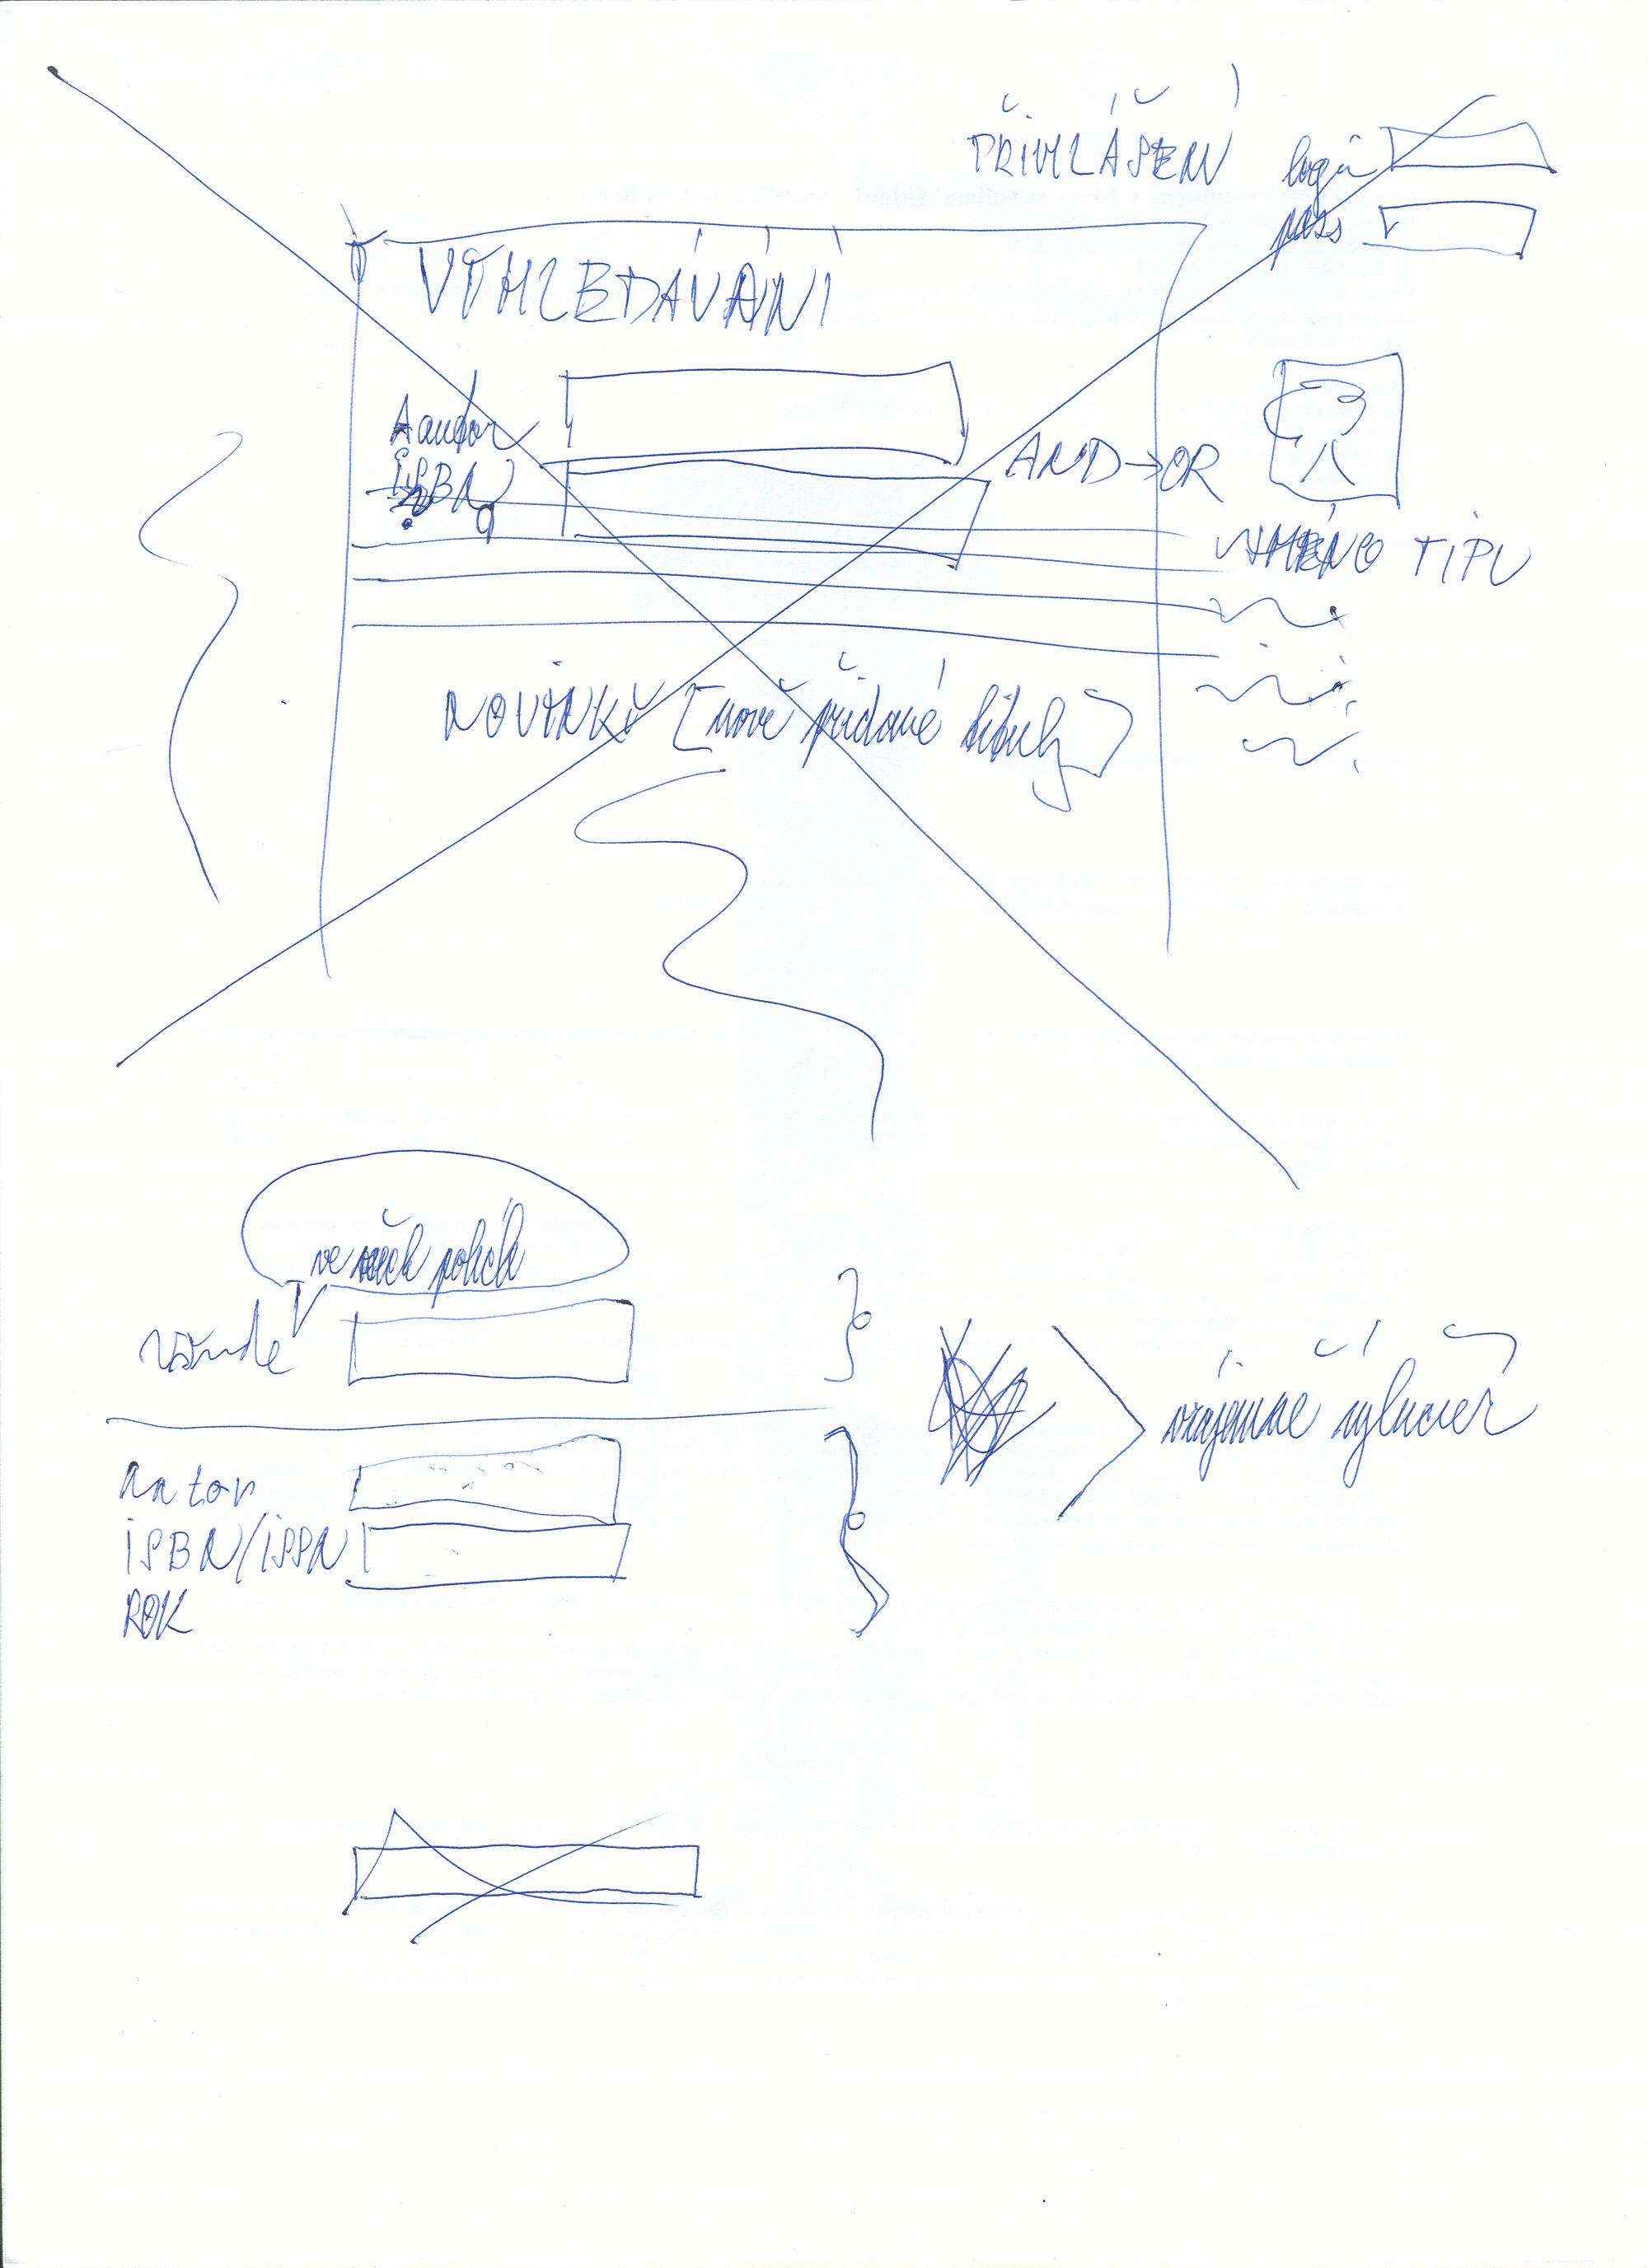 PŘIHLÁŠENÍ login
pass
VYHLEDÁVÁNÍ
autor
ISBN
AND → OR
JMÉNO TIPU
NOVINKY [nově přidané tituly]
ve všech polích
všude
autor
ISBN/ISSN
ROK
vzájemně výlučné